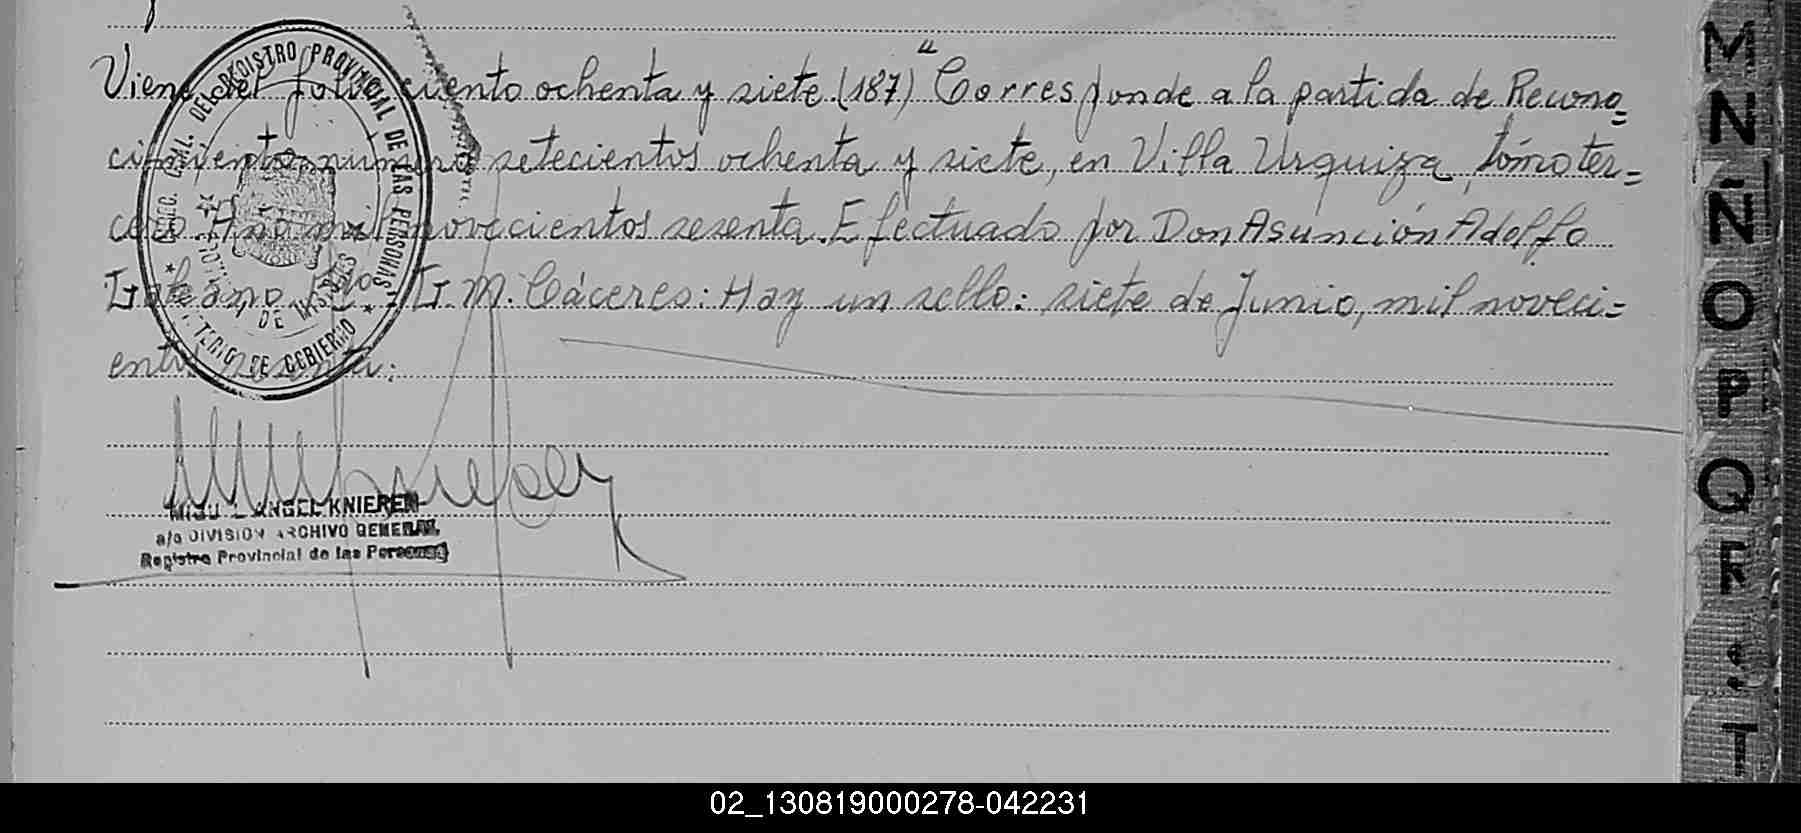 Viene del folio ciento ochenta y siete (187) " Corresponde a la partida de Recono=
cimiento numero setecientos ochenta y siete, en Villa Urquiza, tómo ter=
cero. Año mil novecientos sesenta. Efectuado por Don Asunción Adolfo
G. M. Cáceres: Hay un sello: siete de Junio, mil noveci=
entos sesenta:
DEL REGISTRO PROVINCIAL DE LAS PERSONAS
DE MISIONES
DE GOBIERNO
MIGUEL ANGEL KNIEREN
a/c DIVISION ARCHIVO GENERAL
Registro Provincial de las Personas
M
N
Ñ
O
P
Q
R
S
T
02_130819000278-042231